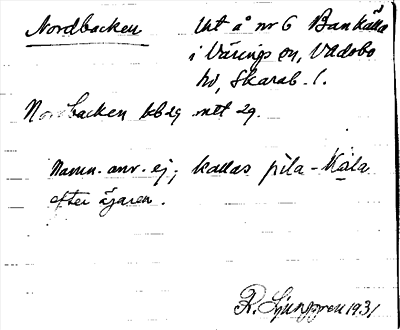 Nordbacken
Ut å nr 6 Bankälla
i Värings sn, Vadsbo
hd, Skarab. l.
Nordbacken kb 29 mtl 29.
Namn. anv. ej, kallas pila-Kala
efter ägaren.
R. Ljunggren 1931